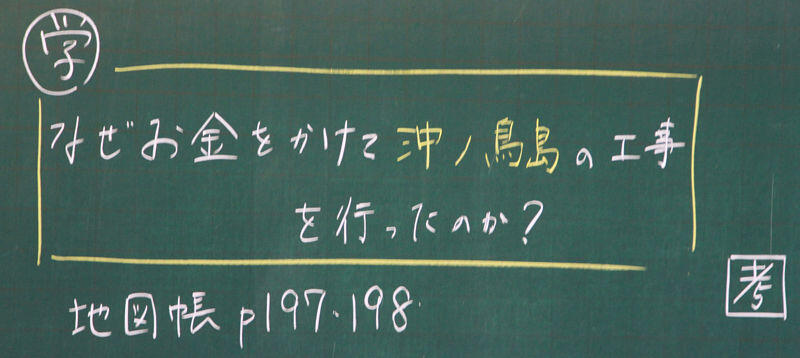 学
なぜお金をかけて沖ノ鳥島の工事
を行ったのか?
考
地図帳 p197.198